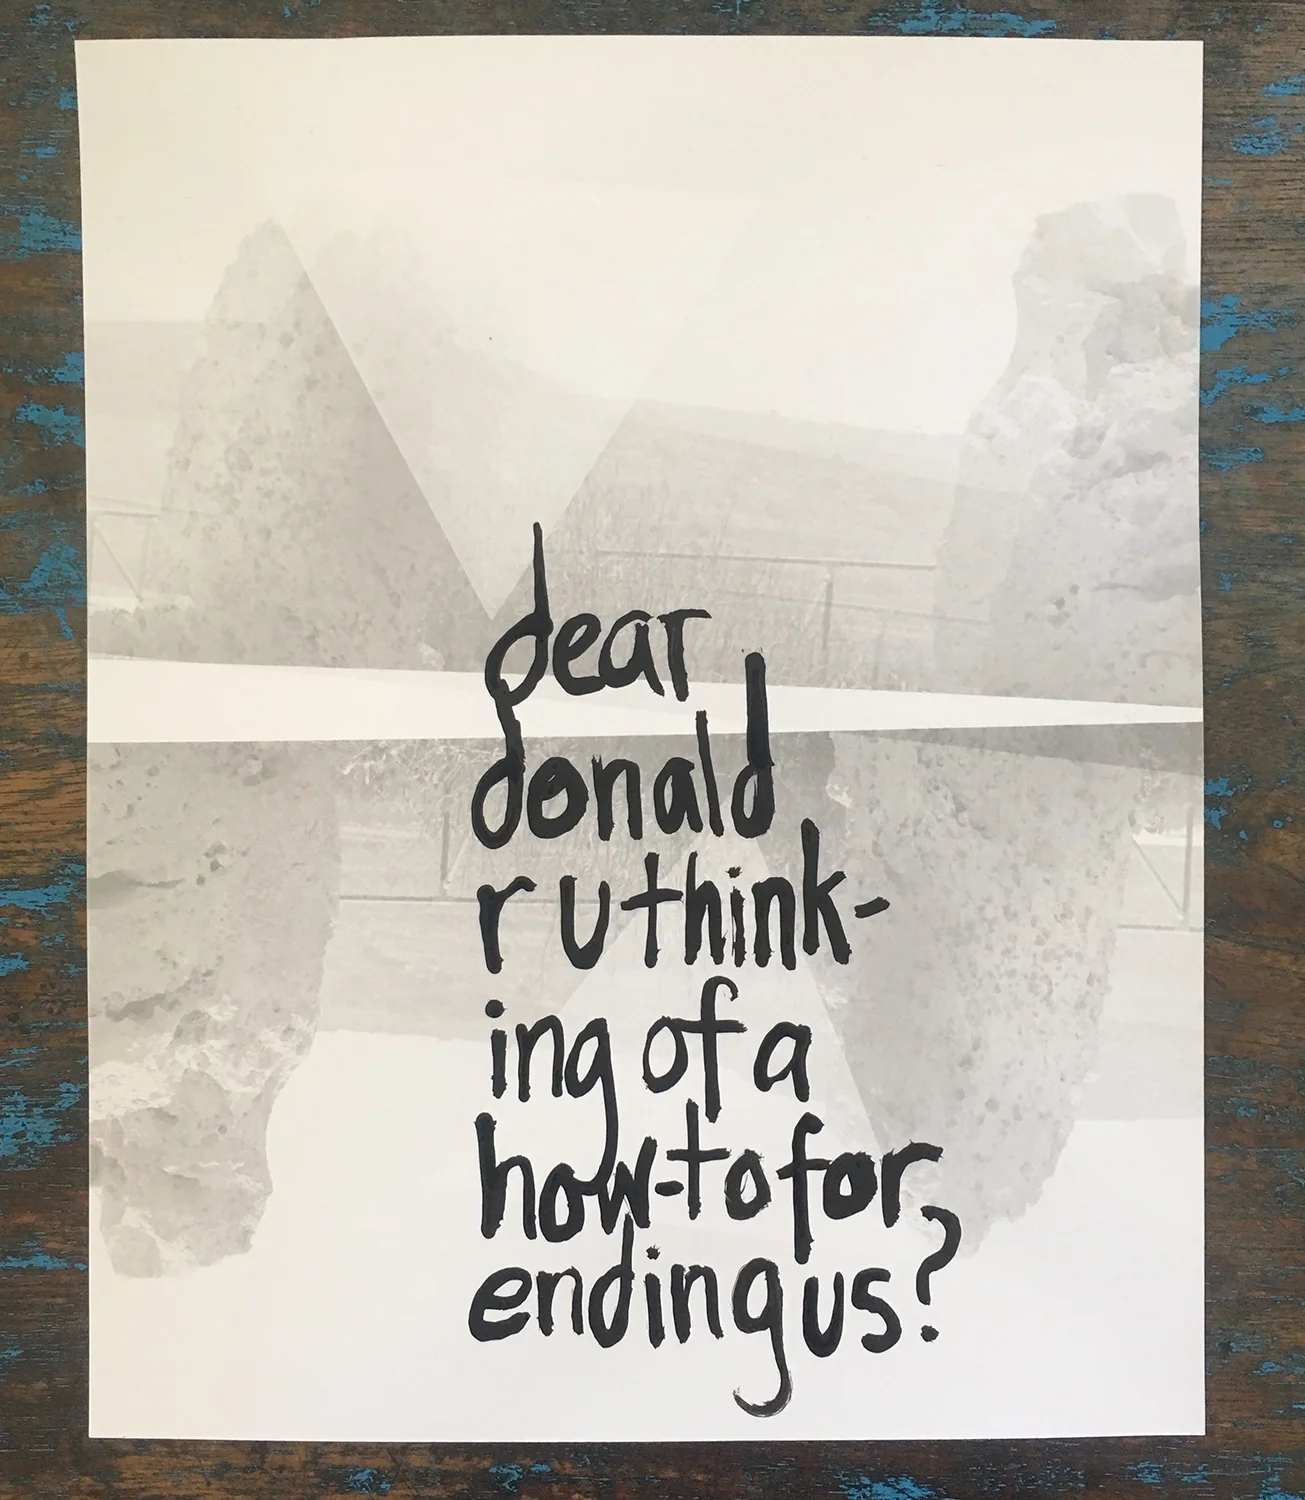 dear
donald
r u think-
ing of a
how-to for
ending us?